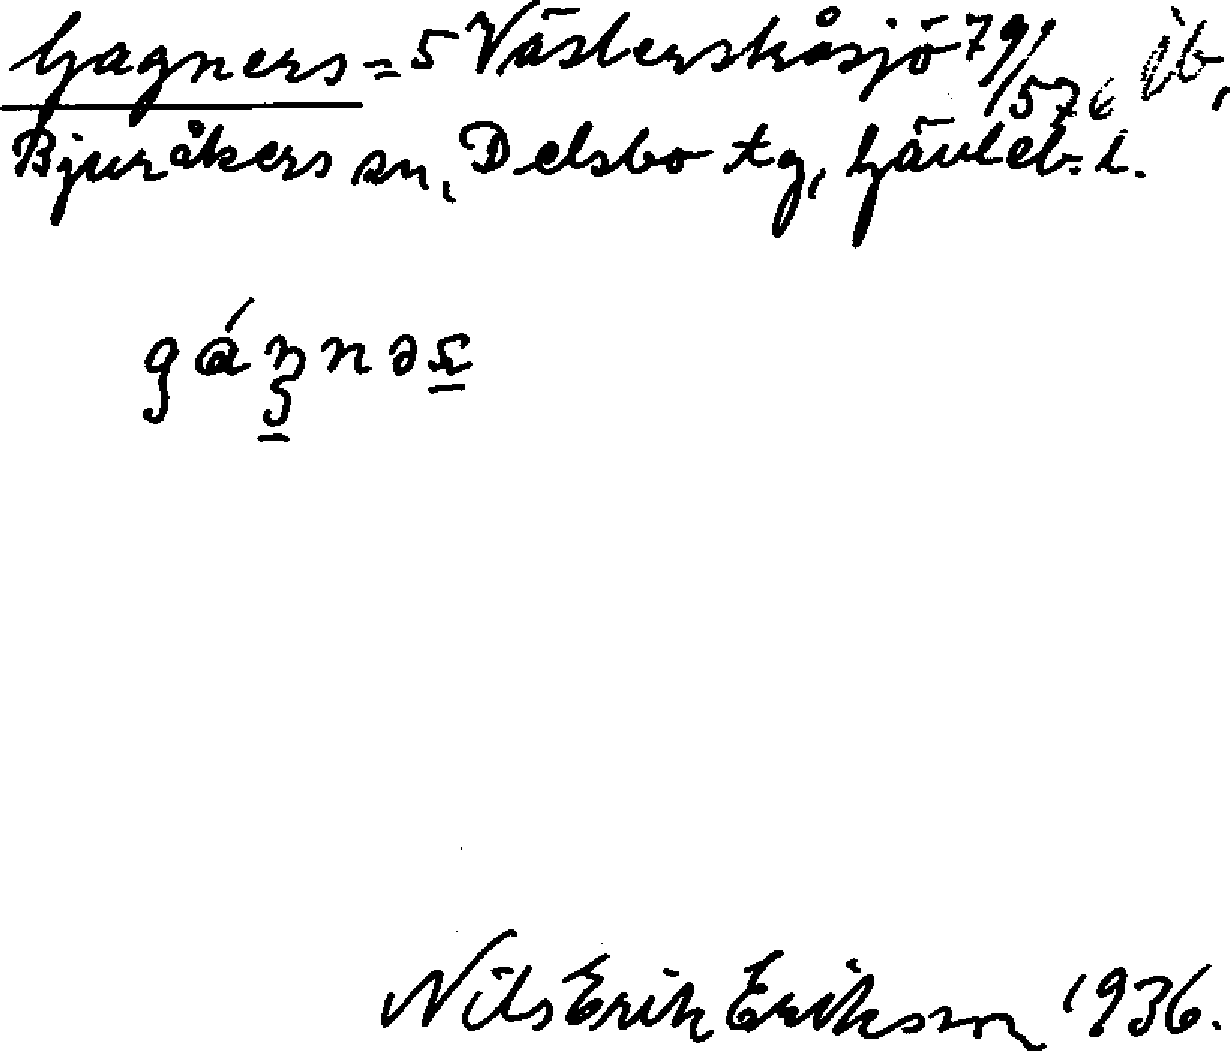 Gagners = 5 Västerskåsjö 79/576 jb,
Bjuråkers sn, Delsbo tg, Gävleb. l.
gáŋnəs
Nils Erik Eriksson 1936.